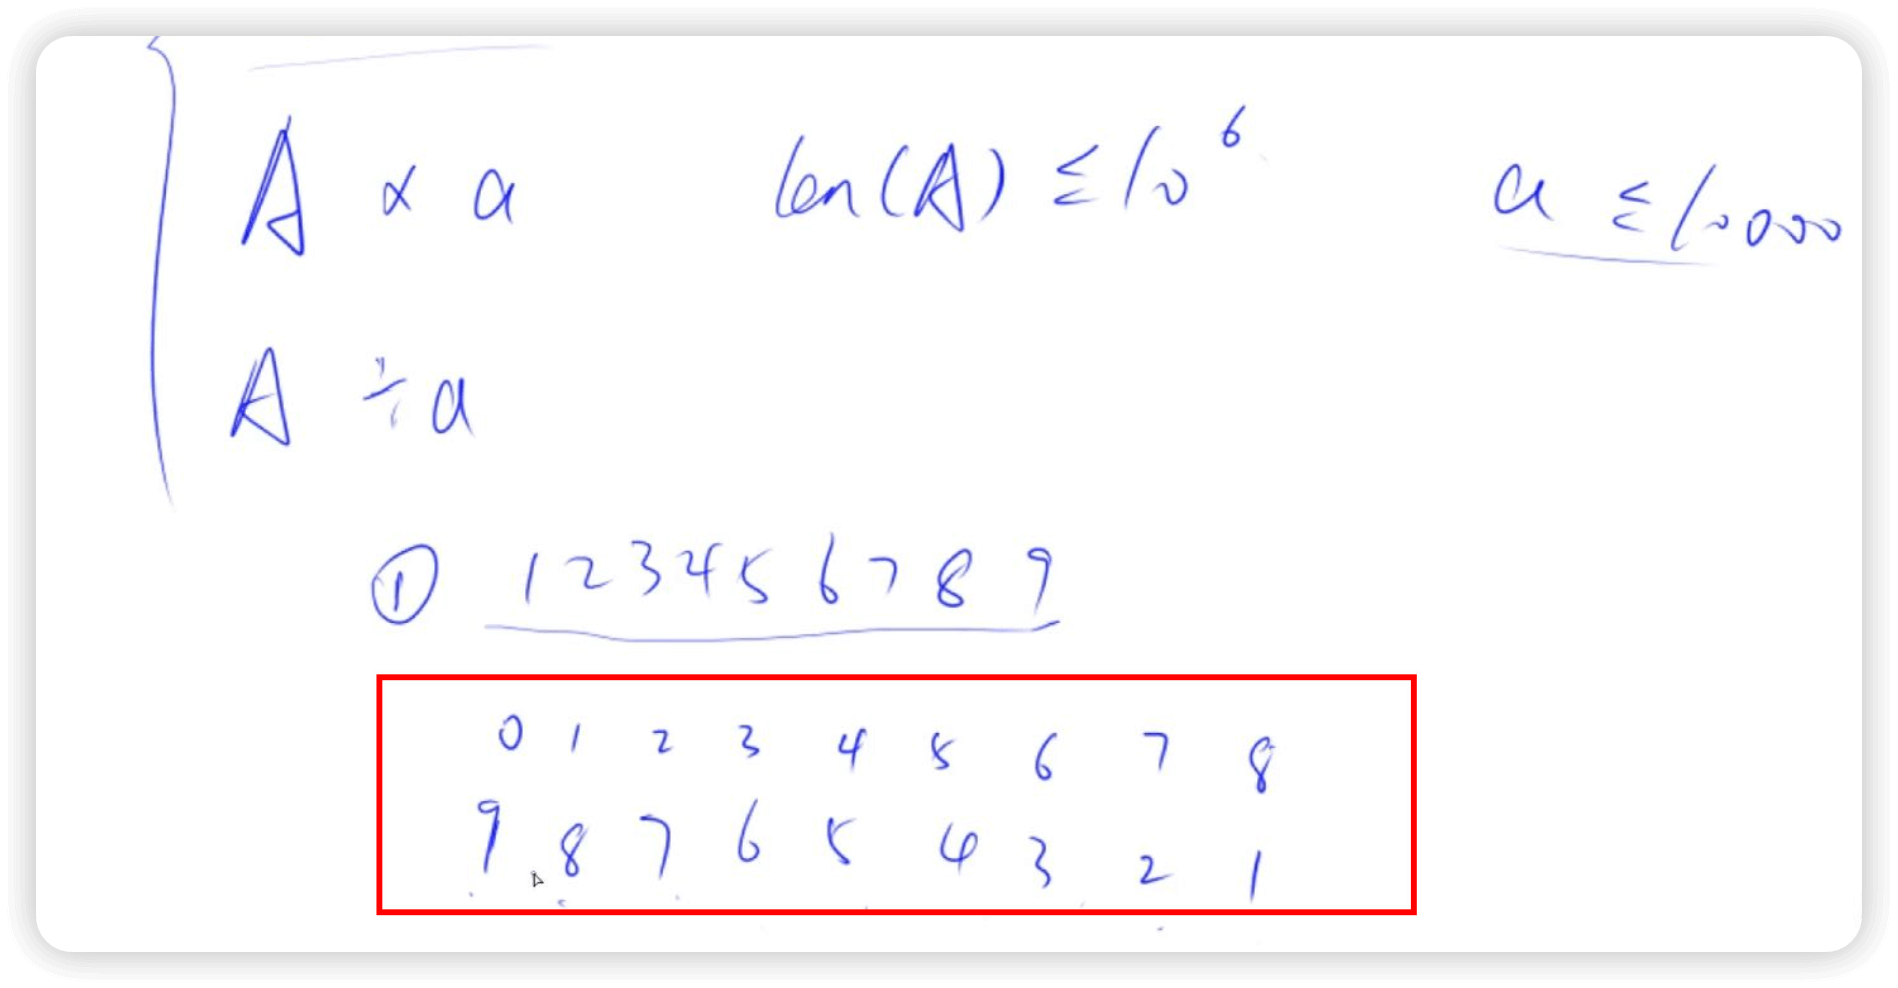 A × a len(A) ≤ 10⁶ a ≤ 10000
A ÷ a
① 1 2 3 4 5 6 7 8 9
0 1 2 3 4 5 6 7 8
9 8 7 6 5 4 3 2 1